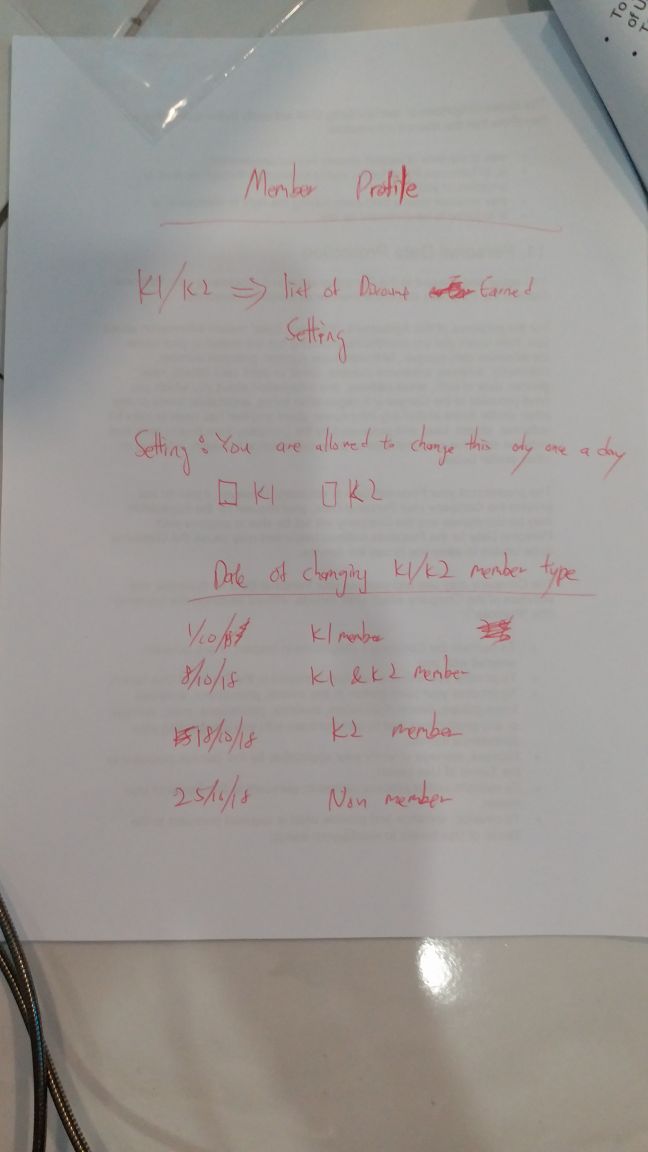 To
of U
T
Member Profile
K1/K2 ⇒ list of Discount Earned
Setting
Setting : You are allowed to change this only one a day
☐ K1 ☐ K2
Date of changing K1/K2 member type
1/10/18 K1 member
8/10/18 K1 & K2 member
18/10/18 K2 member
25/10/18 Non member